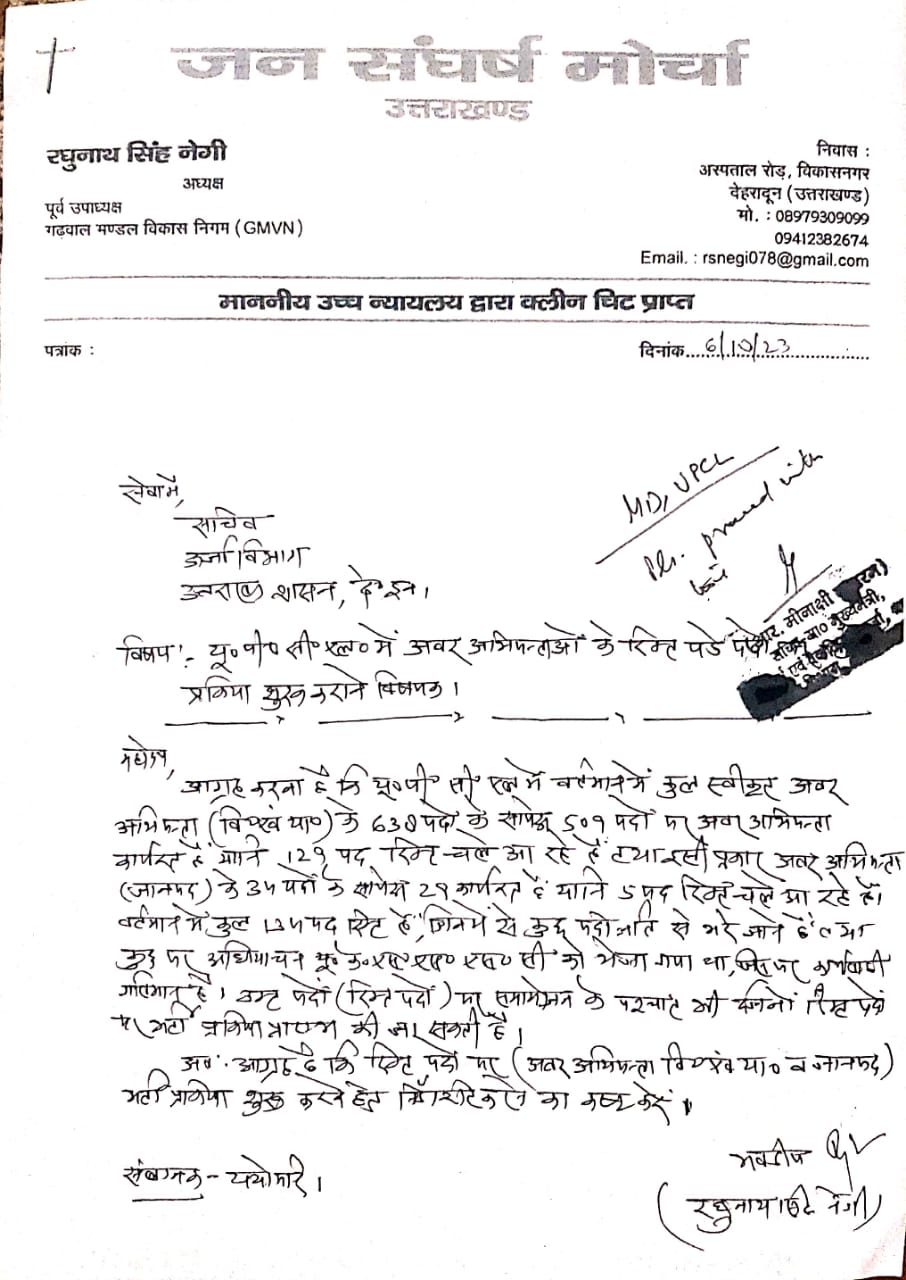 जन संघर्ष मोर्चा
उत्तराखण्ड
रघुनाथ सिंह नेगी
अध्यक्ष
पूर्व उपाध्यक्ष
गढ़वाल मण्डल विकास निगम (GMVN)
निवास :
अस्पताल रोड़, विकासनगर
देहरादून (उत्तराखण्ड)
मो. : 08979309099
09412382674
Email. : rsnegi078@gmail.com
माननीय उच्च न्यायलय द्वारा क्लीन चिट प्राप्त
पत्रांक :
दिनांक 6/10/23
सेवामें,
सचिव
ऊर्जा विभाग
शासन,
MD, UPCL
Pls. proceed with
आर. मीनाक्षी
सचिव मा० मुख्यमंत्री,
विषय :- यू० पी० सी० एल० में अवर अभियन्ताओं के रिक्त पडे
प्रक्रिया शुरू कराने विषयक ।
महोदय,
आग्रह करना है कि यू०पी० सी० एल में वर्तमान में कुल स्वीकृत अवर
अभियन्ता (वि०एवं या०) के 638 पदों के सापेक्ष 509 पदों पर अवर अभियन्ता
कार्यरत हैं यानि 129 पद रिक्त चले आ रहे हैं तथा इसी प्रकार अवर अभियन्ता
(जानपद) के 34 पदों के सापेक्ष 29 कार्यरत हैं यानि 5 पद रिक्त चले आ रहे हैं।
वर्तमान में कुल 134 पद रिक्त हैं, जिनमें से कुछ पदोन्नति से भरे जाने हैं तथा
कुछ पर अधियाचन यू० के० एस० एस० एस० सी को भेजा गया था, जिस पर कार्यवाही
गतिमान है। उक्त पदों (रिक्त पदों) पर समायोजन के पश्चात भी रिक्त पदों
पर भर्ती प्रक्रिया प्रारम्भ की जा सकती है।
अत: आग्रह है कि रिक्त पदों पर (अवर अभियन्ता वि०एवं या० व जानपद)
भर्ती प्रक्रिया शुरू करने हेतु का कष्ट करें।
संलग्नक - यथोपरि ।
भवदीय
(रघुनाथ सिंह नेगी)